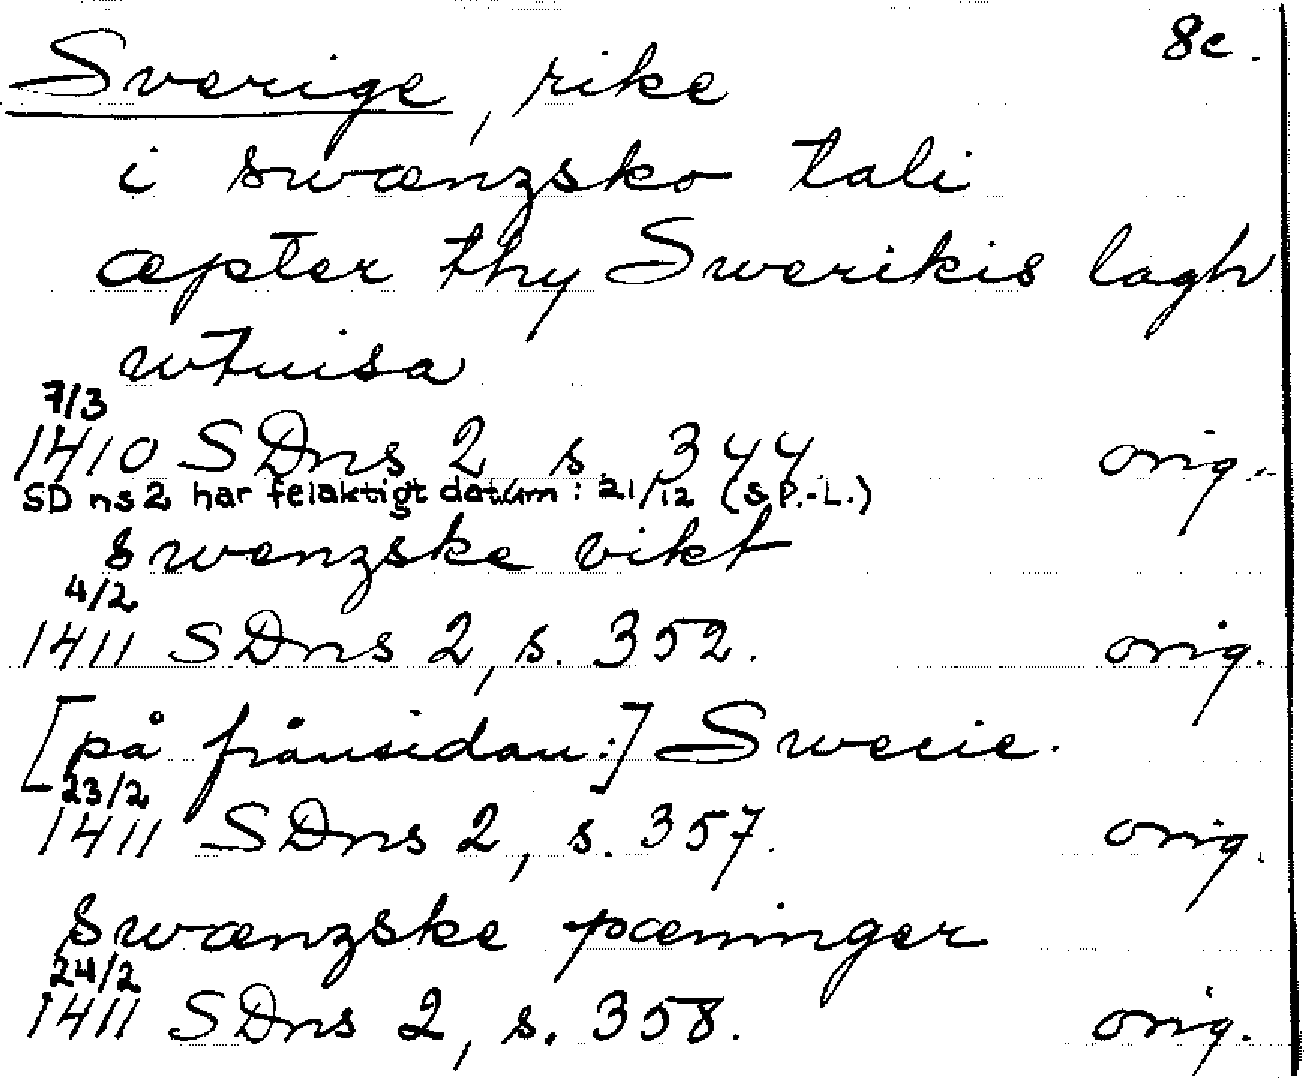 8c.
Sverige, rike
i swænzsko tali
æpter thy Swerikis lagh
wtuisa
7/3
1410 SDns 2 s. 344 orig.
SD ns 2 har felaktigt datum: 21/12 (SP.-L.)
swenzske vikt
4/2
1411 SDns 2, s. 352. orig.
[på frånsidan:] Swecie.
23/2
1411 SDns 2, s. 357. orig.
swænzske pæninger
24/2
1411 SDns 2, s. 358. orig.